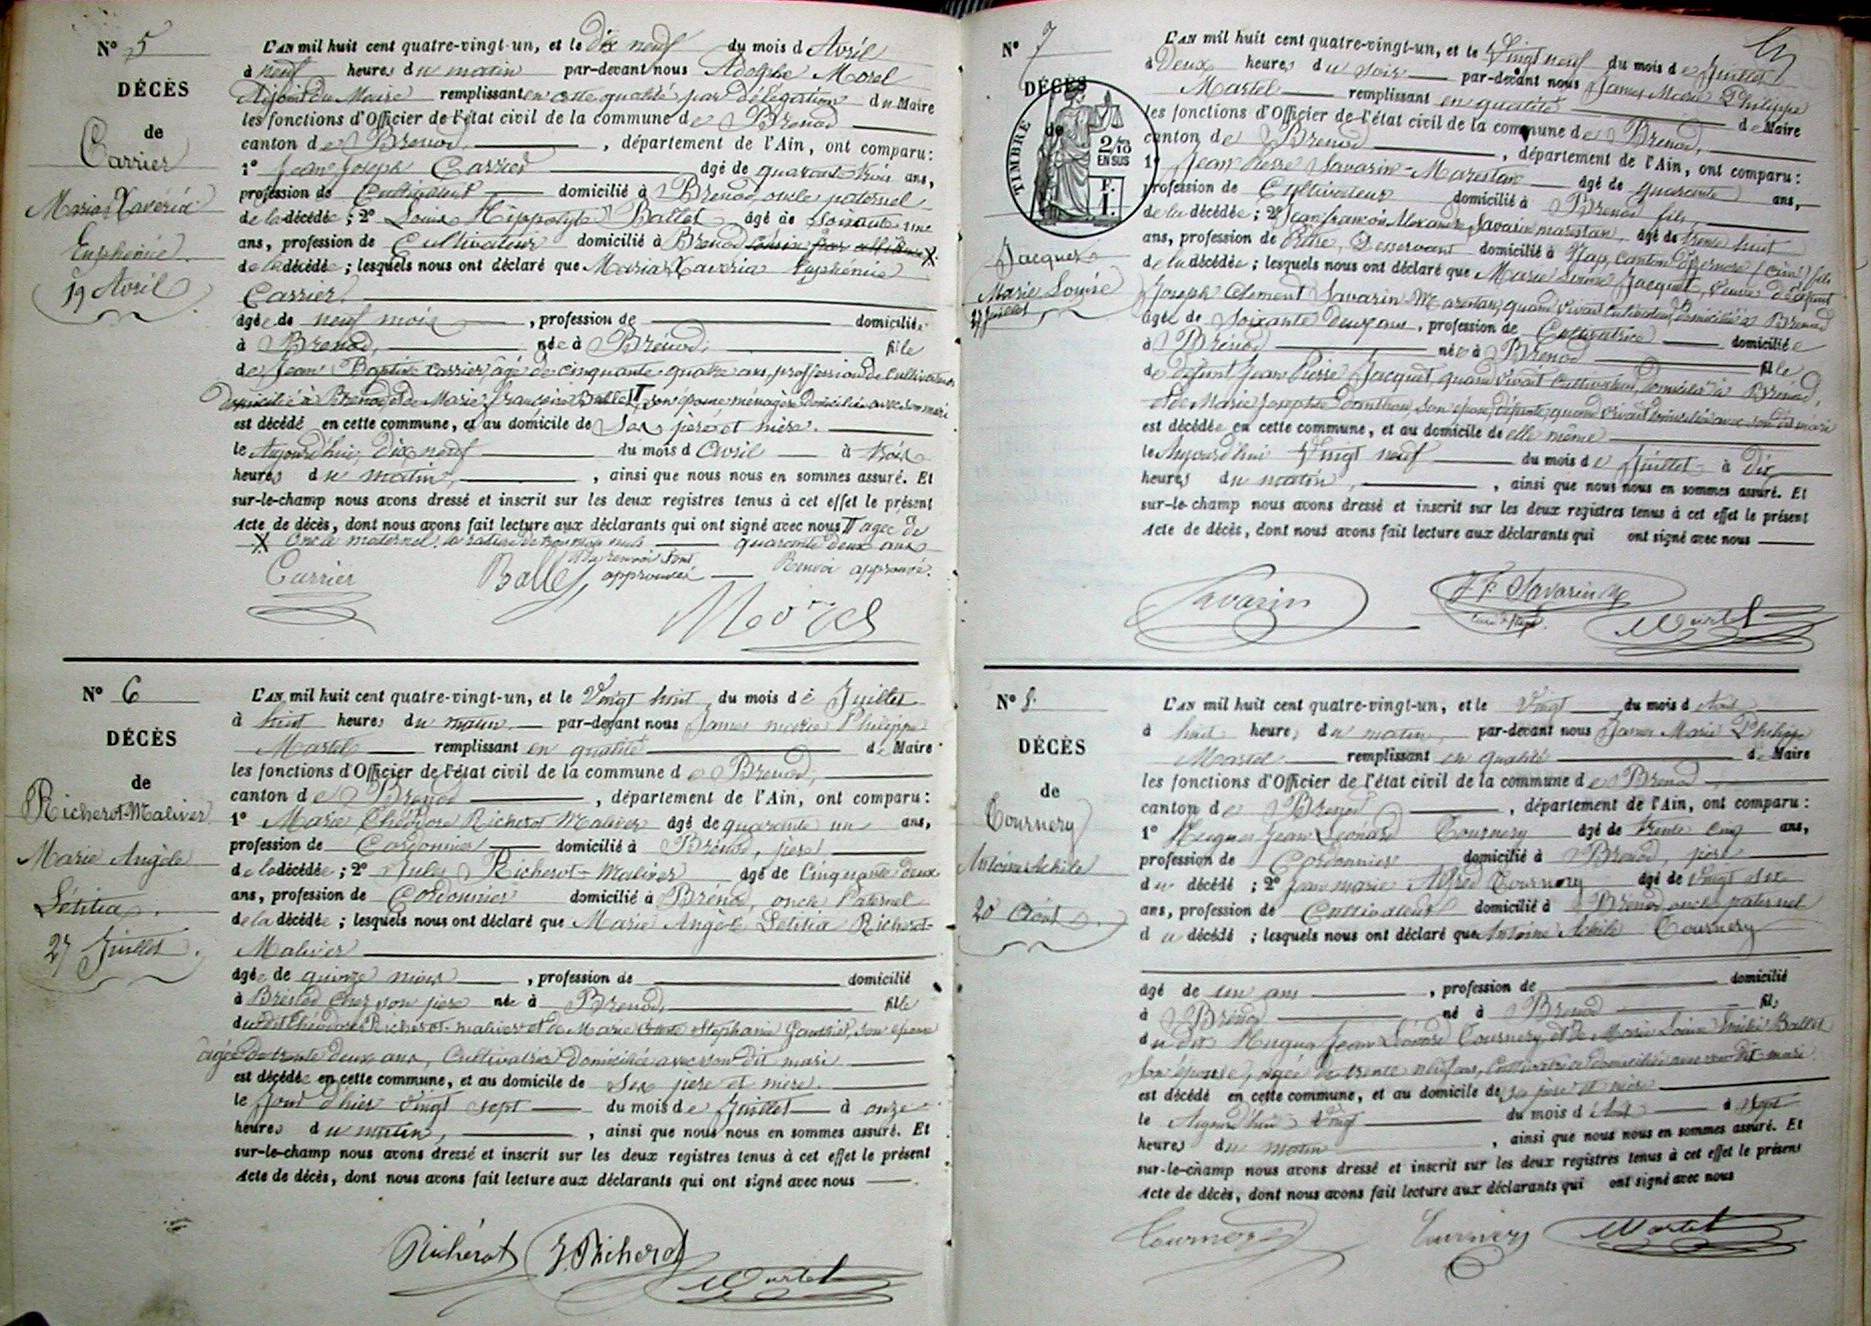 N° 5
DÉCÈS
de
Carrier
Maria Xavéria
Euphémie.
19 Avril
L'AN mil huit cent quatre-vingt-un, et le dix neuf du mois d Avril
à neuf heures du matin par-devant nous Adolphe Morel
Adjoint du Maire remplissant en cette qualité par délégation du Maire
les fonctions d'Officier de l'état civil de la commune de Brenod
canton de Brenod, département de l'Ain, ont comparu:
1° Jean Joseph Carrier âgé de quarante trois ans,
profession de Cultivateur domicilié à Brénod, oncle paternel
de la décédée; 2° Louis Hippolyte Ballet âgé de soixante une
ans, profession de Cultivateur domicilié à Brenod X
de la décédée; lesquels nous ont déclaré que Maria Xavéria Euphémie
Carrier.
âgée de neuf mois, profession de domiciliée
à Brenod, née à Brénod, fille
de Jean Baptiste Carrier, âgé de cinquante-quatre ans, proffession de Cultivateur
domicilié à Brenod, et de Marie Françoise Ballet, son épouse ménagère domiciliée avec son mari
est décédé en cette commune, et au domicile de Ses père et mère.
le Aujourd'hui, dix neuf du mois d Avril à trois
heures du matin, ainsi que nous nous en sommes assuré. Et
sur-le-champ nous avons dressé et inscrit sur les deux registres tenus à cet effet le présent
Acte de décès, dont nous avons fait lecture aux déclarants qui ont signé avec nous agée de
X Oncle maternel. la rature de trois mots nuls quarante deux ans
et le renvoi sont approuvés Renvoi approuvé.
Carrier Ballet Morel
N° 6
DÉCÈS
de
Richerot-Malivier
Marie Angèle
Létitia.
27 Juillet.
L'AN mil huit cent quatre-vingt-un, et le Vingt huit du mois de Juillet
à huit heures du matin par-devant nous James marie Philippe
Martel remplissant en qualité de Maire
les fonctions d'Officier de l'état civil de la commune de Brenod,
canton de Brenod, département de l'Ain, ont comparu:
1° Marie Théodore Richerot Malivier âgé de quarante un ans,
profession de Cordonnier domicilié à Brénod, père
de la décédée; 2° Jules Richerot-Malivier âgé de Cinquante deux
ans, profession de Cordonnier domicilié à Brénod, oncle Paternel
de la décédée; lesquels nous ont déclaré que Marie Angèle Létitia Richerot-
Malivier
âgée de quinze mois, profession de domicilié
à Brénod chez son père née à Brenod, fille
du dit Théodore Richerot-malivier et de Marie Stéphanie Gauthier, son épouse
âgée de trente deux ans, Cultivatrice domiciliée avec son dit mari
est décédée en cette commune, et au domicile de Ses père et mère.
le Jour d'hier vingt sept du mois de Juillet à onze
heures du matin, ainsi que nous nous en sommes assuré. Et
sur-le-champ nous avons dressé et inscrit sur les deux registres tenus à cet effet le présent
Acte de décès, dont nous avons fait lecture aux déclarants qui ont signé avec nous
Richerot J. Richerot Martel
N° 7
DÉCÈS
de
TIMBRE
2/10
EN SUS
Jacquet
Marie Louise
29 Juillet
L'AN mil huit cent quatre-vingt-un, et le Vingt neuf du mois de Juillet
à Deux heures du soir par-devant nous James Marie Philippe
Martel remplissant en qualité de Maire
les fonctions d'Officier de l'état civil de la commune de Brenod,
canton de Brenod, département de l'Ain, ont comparu:
1° Jean Pierre Savarin-Marestan âgé de quarante ans,
profession de Cultivateur domicilié à Brenod fils
de la décédée; 2° Jean françois Alexandre Savarin marestan âgé de trente huit
ans, profession de Prêtre, Desservant domicilié à canton (Ain) fils
de la décédée; lesquels nous ont déclaré que Marie Louise Jacquet, Veuve de défunt
Joseph Clément Savarin Marestan, quand vivait Cultivateur, domicilié à Brenod
âgée de Soixante deux ans, profession de Cultivatrice domiciliée
à Brénod née à Brénod fille
de défunt Jean Pierre Jacquet, quand vivait Cultivateur, domicilié à Brenod,
et de Marie Josephte son épouse, défunte, quand vivait domiciliée avec son dit mari
est décédée en cette commune, et au domicile de elle même
le Aujourd'hui Vingt neuf du mois de Juillet à dix
heures du matin, ainsi que nous nous en sommes assuré. Et
sur-le-champ nous avons dressé et inscrit sur les deux registres tenus à cet effet le présent
Acte de décès, dont nous avons fait lecture aux déclarants qui ont signé avec nous
Savarin J F Savarin M Martel
N° 8.
DÉCÈS
de
Tournery
Antoine Achile
20 Août.
L'AN mil huit cent quatre-vingt-un, et le Vingt du mois d Août
à huit heures du matin, par-devant nous James Marie Philippe
Martel remplissant en qualité de Maire
les fonctions d'Officier de l'état civil de la commune de Brenod
canton de Brenod, département de l'Ain, ont comparu:
1° Hugues Jean Léonard Tournery âgé de trente cinq ans,
profession de Cordonnier domicilié à Brenod, père
du décédé; 2° Jean marie Alfred Tournery âgé de vingt
ans, profession de Cultivateur domicilié à Brenod oncle paternel
du décédé; lesquels nous ont déclaré que Antoine Achile Tournery
âgé de un ans, profession de domicilié
à Brénod né à Brenod fils
du dit Hugues Jean Léonard Tournery, et de Marie Louise Ballet
Son épouse, agée de trente neuf ans, Cultivatrice domiciliée avec son dit mari.
est décédé en cette commune, et au domicile de ses père et mère
le Aujourd'hui Vingt du mois d Août à Sept
heures du matin, ainsi que nous nous en sommes assuré. Et
sur-le-champ nous avons dressé et inscrit sur les deux registres tenus à cet effet le présent
Acte de décès, dont nous avons fait lecture aux déclarants qui ont signé avec nous
Tournery Tournery Martel